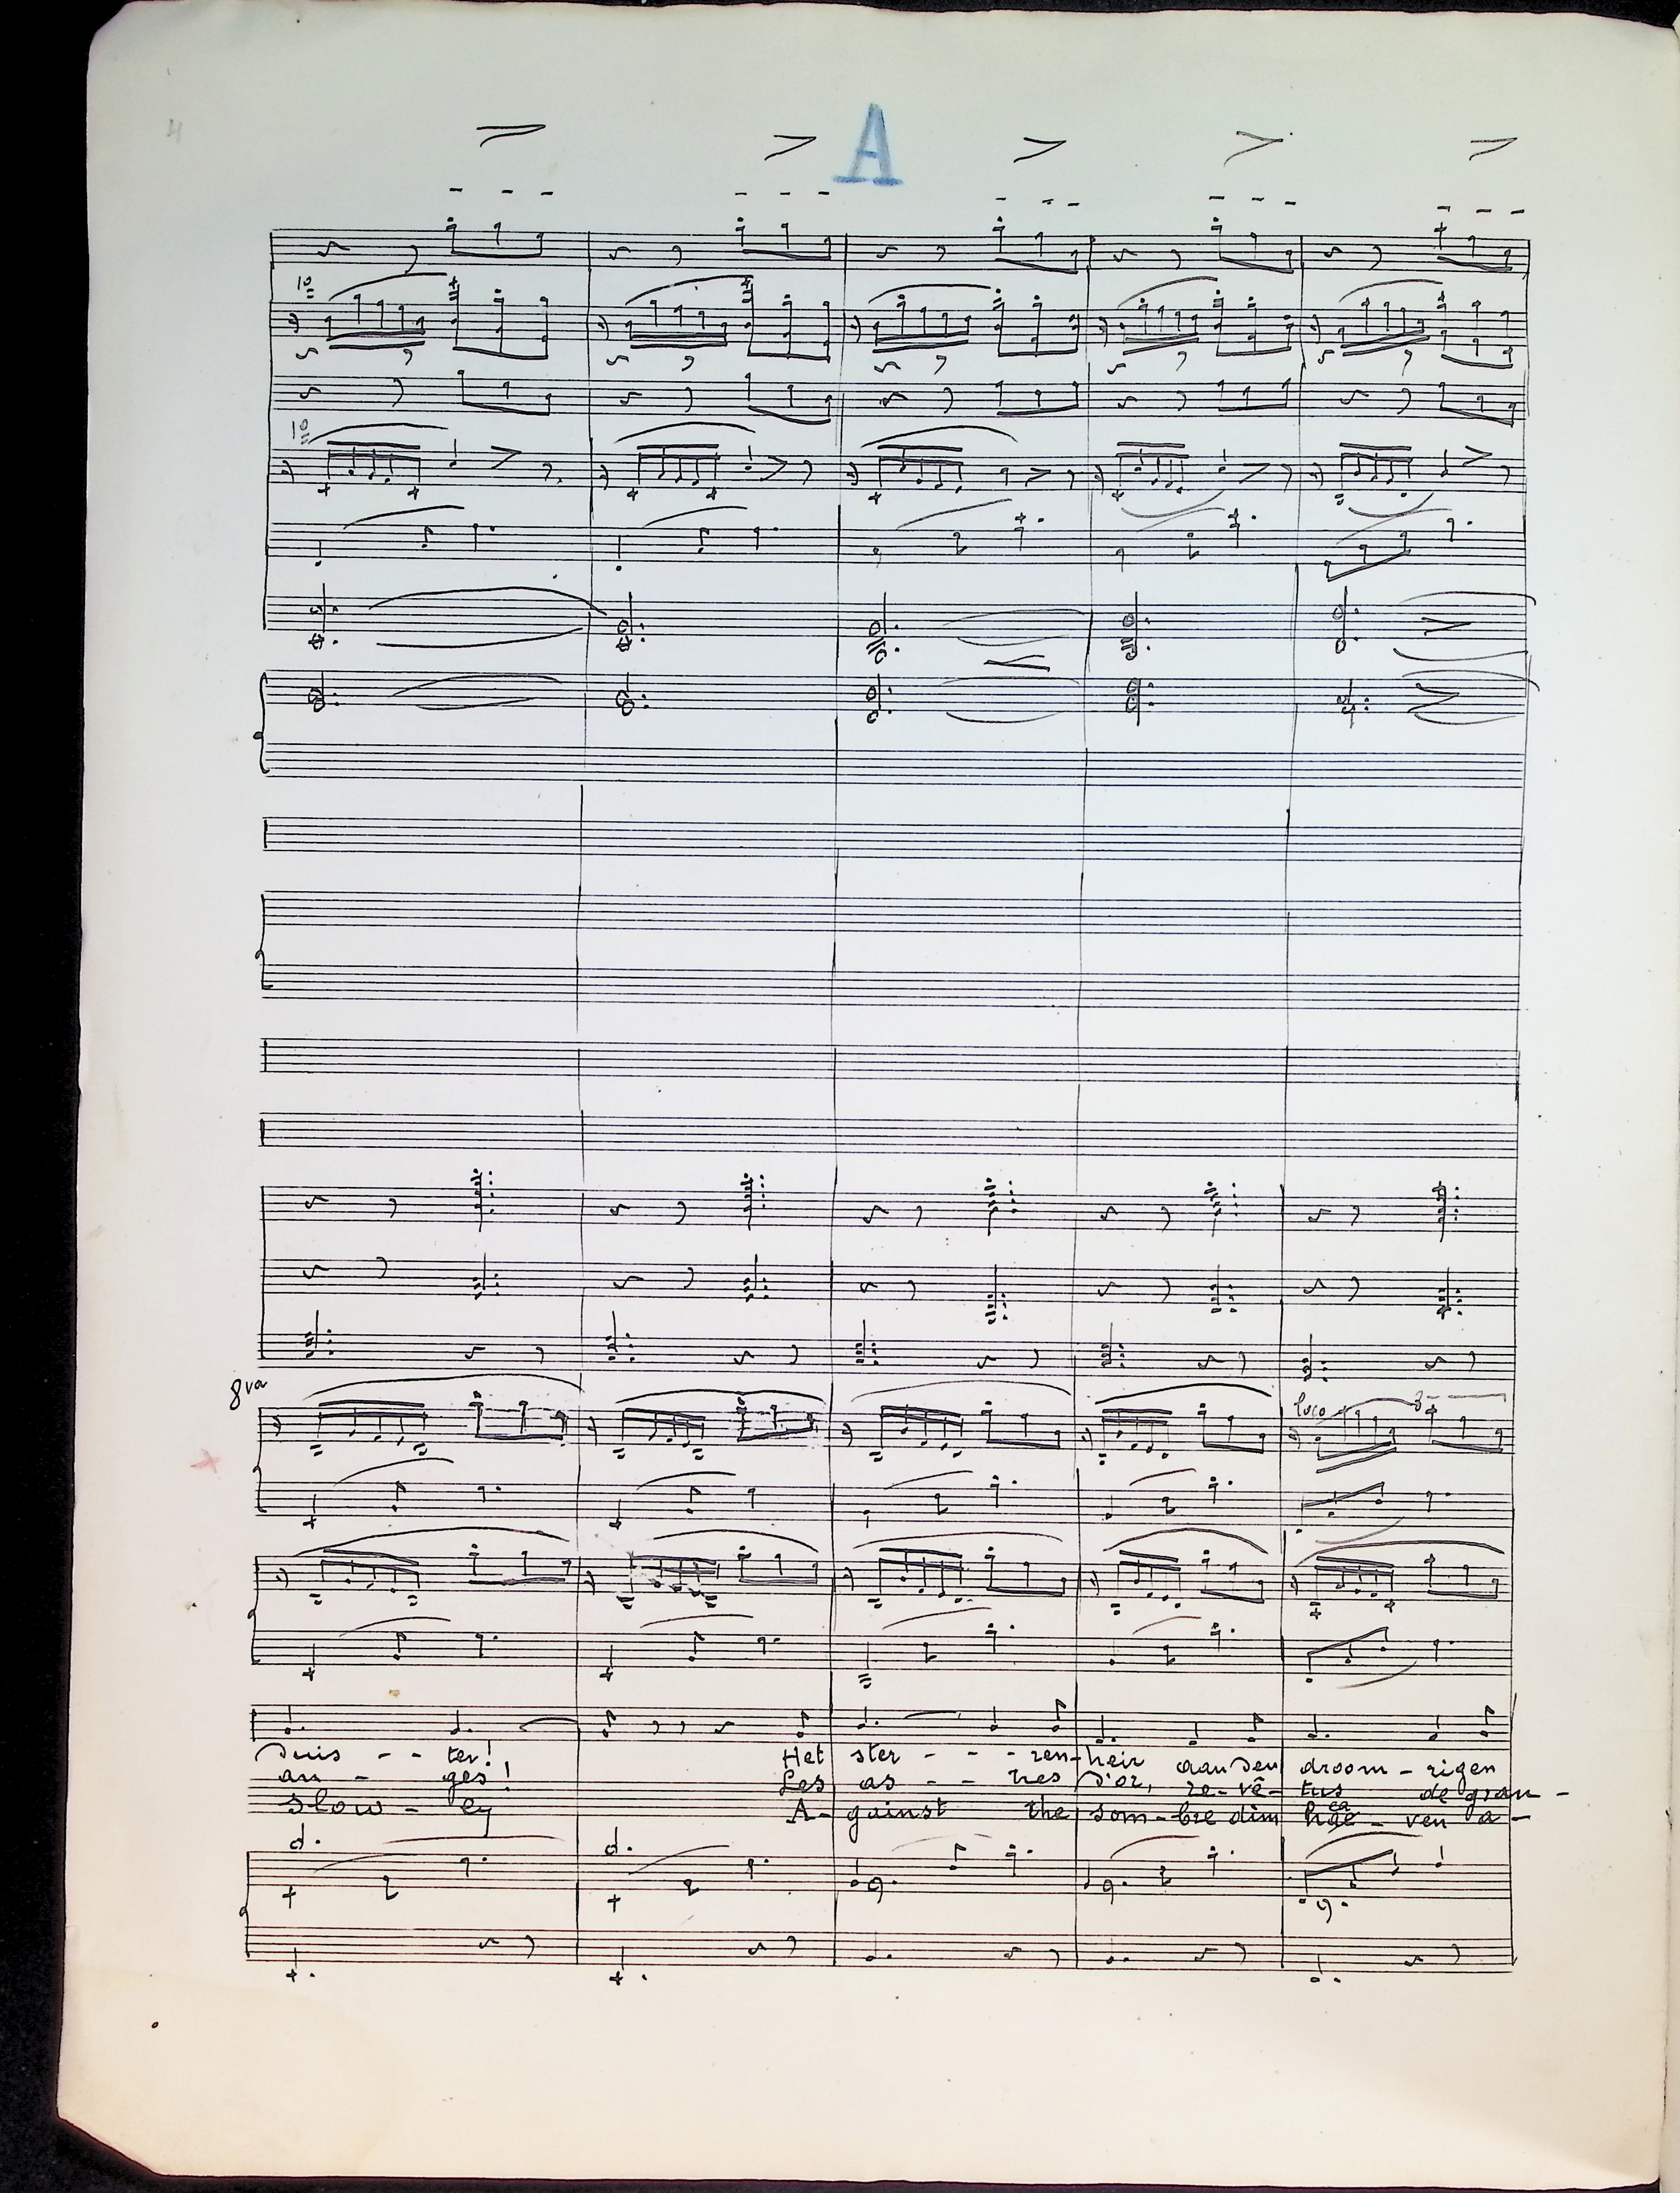 4
A
1º
1º
8va
loco 8
duis - - ter! Het ster - - - ren-heir aan den droom - rigen
an - ges! Les as - - tres d'or, re-vê- tus de gran -
slow - ly A- gainst the som-bre dim hea - ven a -